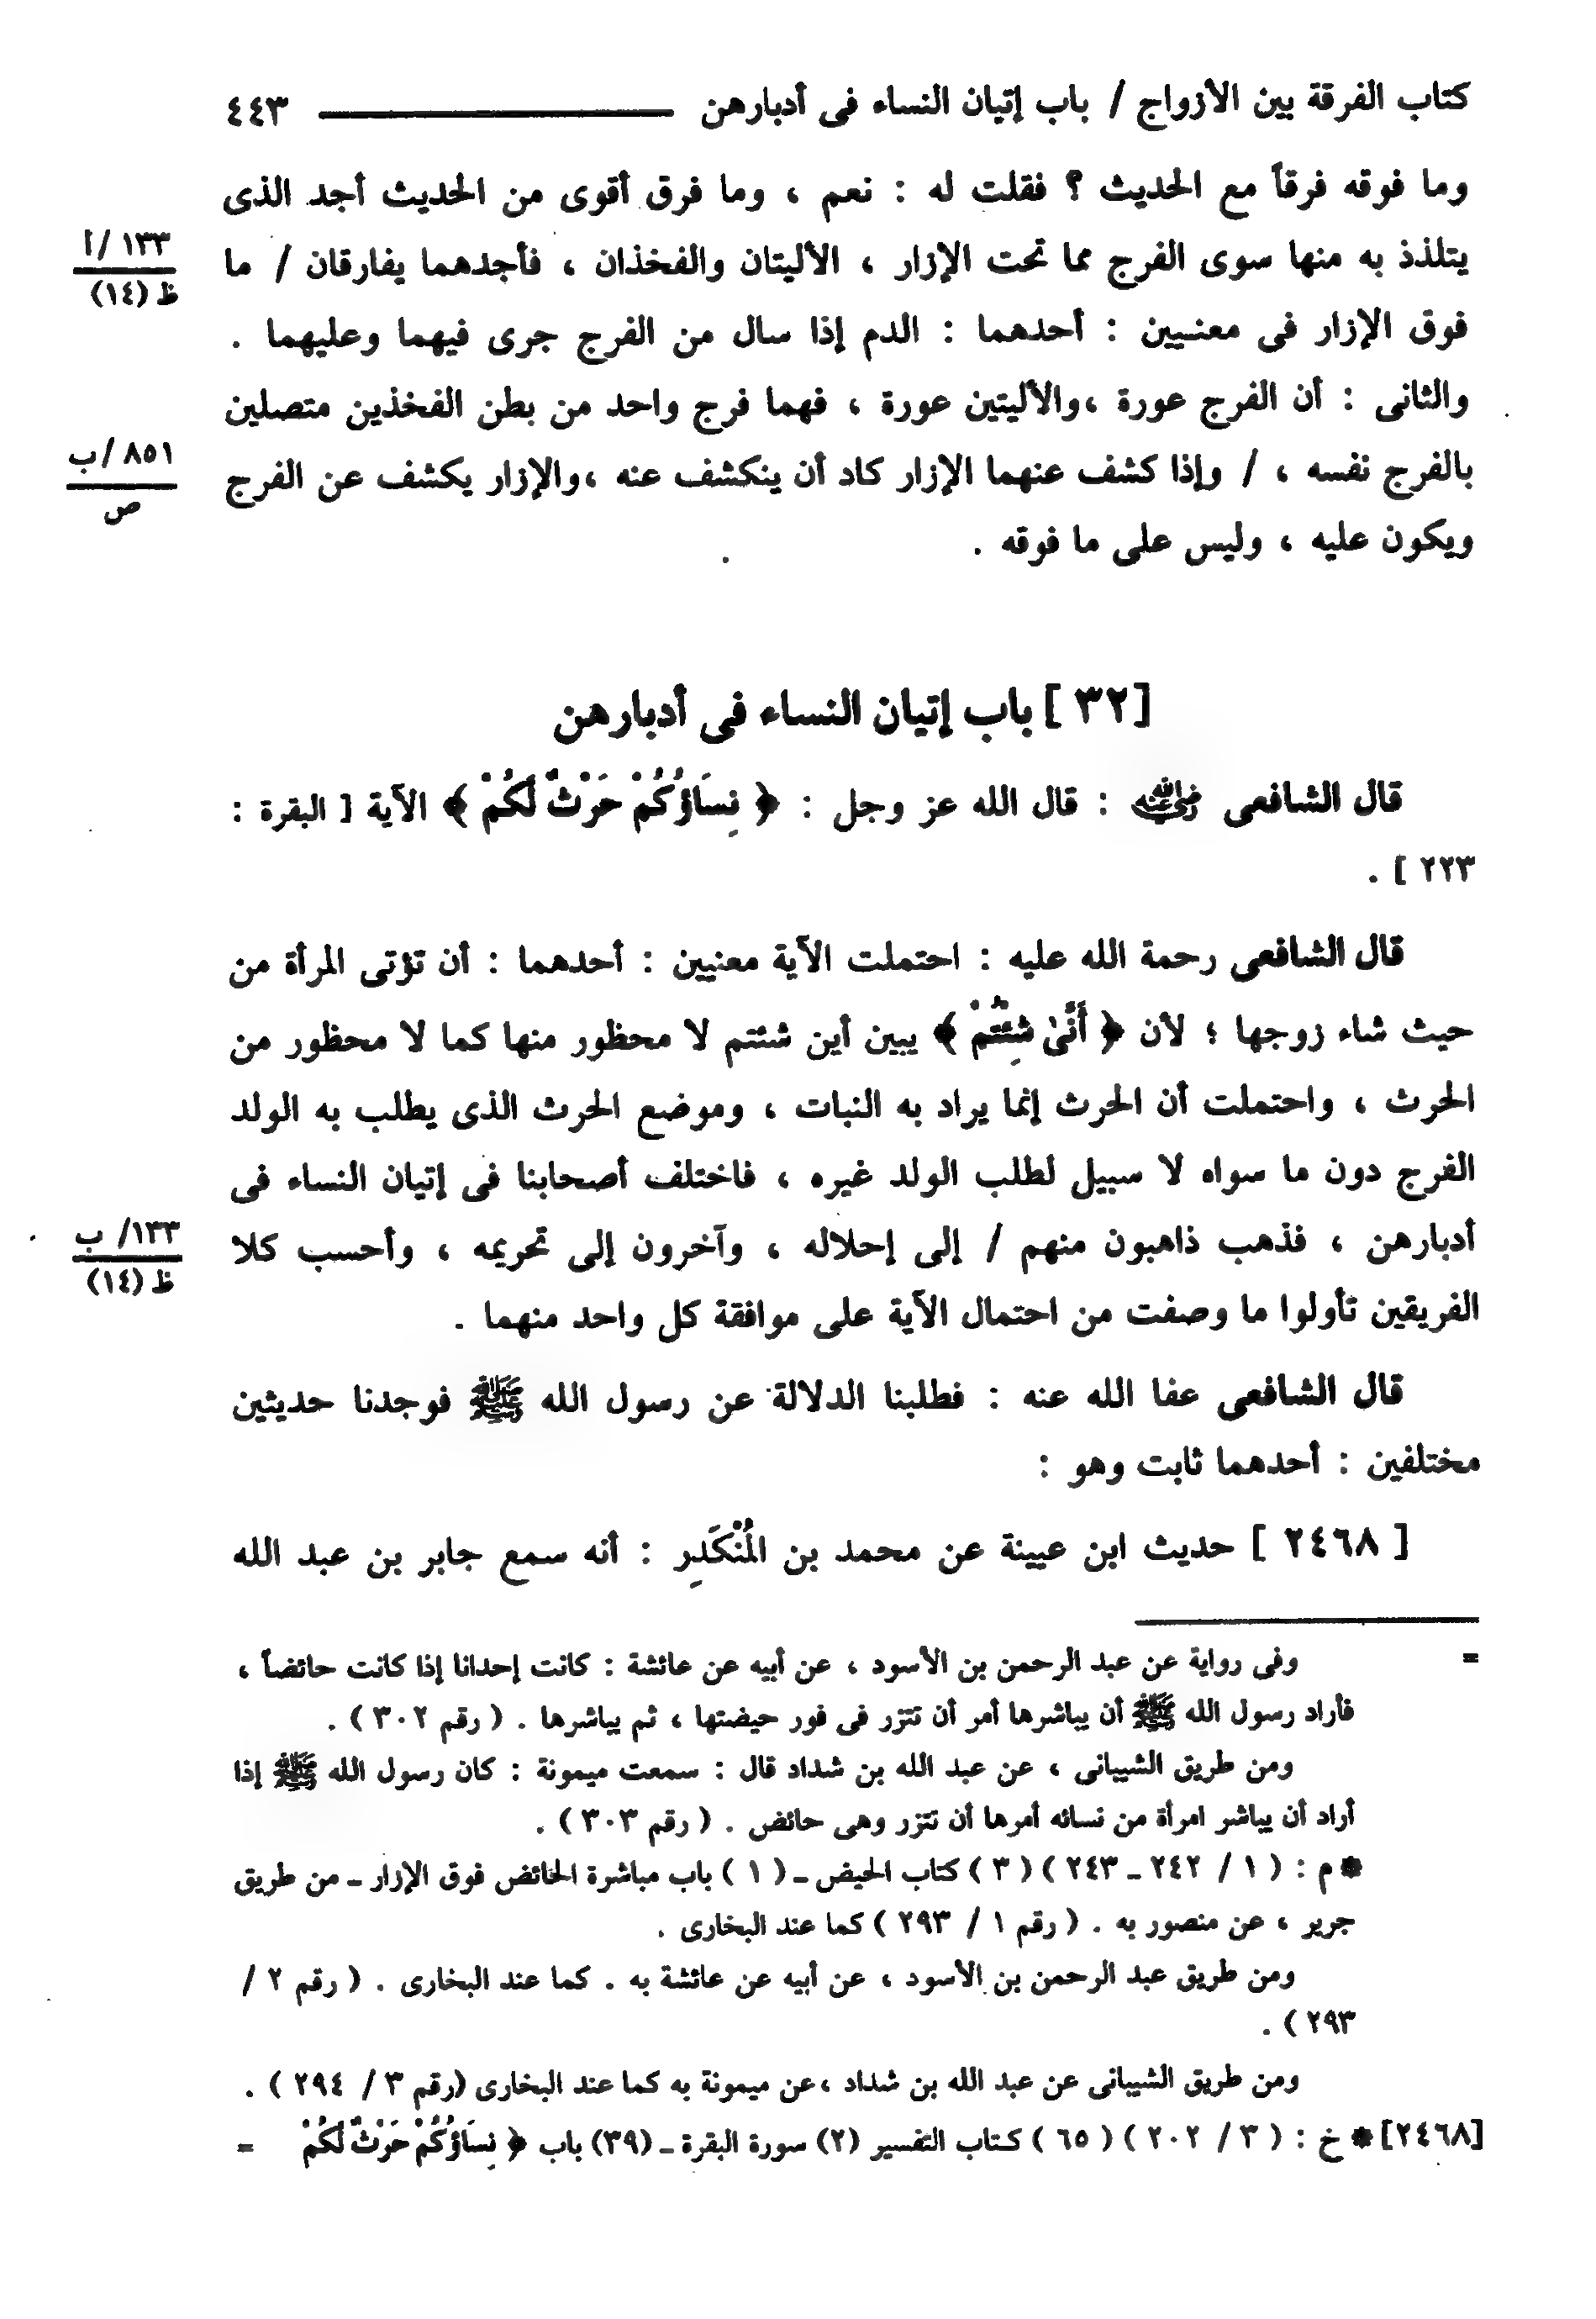 كتاب الفرقة بين الأزواج / باب إتيان النساء فى أدبارهن ـــــــــ ٤٤٣
وما فوقه فرقاً مع الحديث ؟ فقلت له : نعم ، وما فرق أقوى من الحديث أجد الذى
يتلذذ به منها سوى الفرج مما تحت الإزار ، الأليتان والفخذان ، فأجدهما يفارقان / ما
١٣٣ /أ
ظ (١٤)
فوق الإزار فى معنيين : أحدهما : الدم إذا سال من الفرج جرى فيهما وعليهما .
والثانى : أن الفرج عورة ،والأليتين عورة ، فهما فرج واحد من بطن الفخذين متصلين
بالفرج نفسه ، / وإذا كشف عنهما الإزار كاد أن ينكشف عنه ،والإزار يكشف عن الفرج
٨٥١ /ب
ص
ويكون عليه ، وليس على ما فوقه .
[٣٢ ] باب إتيان النساء فى أدبارهن
قال الشافعى رضي الله عنه : قال الله عز وجل : ﴿ نِسَاؤُكُمْ حَرْثٌ لَّكُمْ ﴾ الآية [ البقرة :
٢٢٣ ] .
قال الشافعى رحمة الله عليه : احتملت الآية معنيين : أحدهما : أن تؤتى المرأة من
حيث شاء زوجها ؛ لأن ﴿ أَنَّىٰ شِئْتُمْ ﴾ يبين أين شئتم لا محظور منها كما لا محظور من
الحرث ، واحتملت أن الحرث إنما يراد به النبات ، وموضع الحرث الذى يطلب به الولد
الفرج دون ما سواه لا سبيل لطلب الولد غيره ، فاختلف أصحابنا فى إتيان النساء فى
أدبارهن ، فذهب ذاهبون منهم / إلى إحلاله ، وآخرون إلى تحريمه ، وأحسب كلا
١٣٣/ ب
ظ (١٤)
الفريقين تأولوا ما وصفت من احتمال الآية على موافقة كل واحد منهما .
قال الشافعى عفا الله عنه : فطلبنا الدلالة عن رسول الله ﷺ فوجدنا حديثين
مختلفين : أحدهما ثابت وهو :
[ ٢٤٦٨ ] حديث ابن عيينة عن محمد بن المُنْكَدِر : أنه سمع جابر بن عبد الله
= وفى رواية عن عبد الرحمن بن الأسود ، عن أبيه عن عائشة : كانت إحدانا إذا كانت حائضاً ،
فأراد رسول الله ﷺ أن يباشرها أمر أن تتزر فى فور حيضتها ، ثم يباشرها . ( رقم ٣٠٢ ) .
ومن طريق الشيبانى ، عن عبد الله بن شداد قال : سمعت ميمونة : كان رسول الله ﷺ إذا
أراد أن يباشر امرأة من نسائه أمرها أن تتزر وهى حائض . ( رقم ٣٠٣ ) .
* م : ( ١ / ٢٤٢ ـ ٢٤٣ ) ( ٣ ) كتاب الحيض ـ ( ١ ) باب مباشرة الحائض فوق الإزار ـ من طريق
جرير ، عن منصور به . ( رقم ١ / ٢٩٣ ) كما عند البخارى .
ومن طريق عبد الرحمن بن الأسود ، عن أبيه عن عائشة به . كما عند البخارى . ( رقم ٢ /
٢٩٣ ) .
ومن طريق الشيبانى عن عبد الله بن شداد ،عن ميمونة به كما عند البخارى (رقم ٣ / ٢٩٤ ) .
[٢٤٦٨] * خ : ( ٣ / ٢٠٢ ) ( ٦٥ ) كتاب التفسير (٢) سورة البقرة ـ (٣٩) باب ﴿ نِسَاؤُكُمْ حَرْثٌ لَّكُمْ =